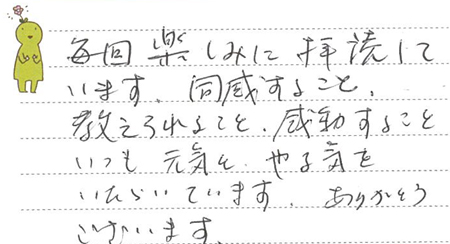 毎回 楽しみに 拝読して
います。同感すること、
教えられること、感動すること
いつも 元気と やる気を
いただいています。ありがとう
ございます。